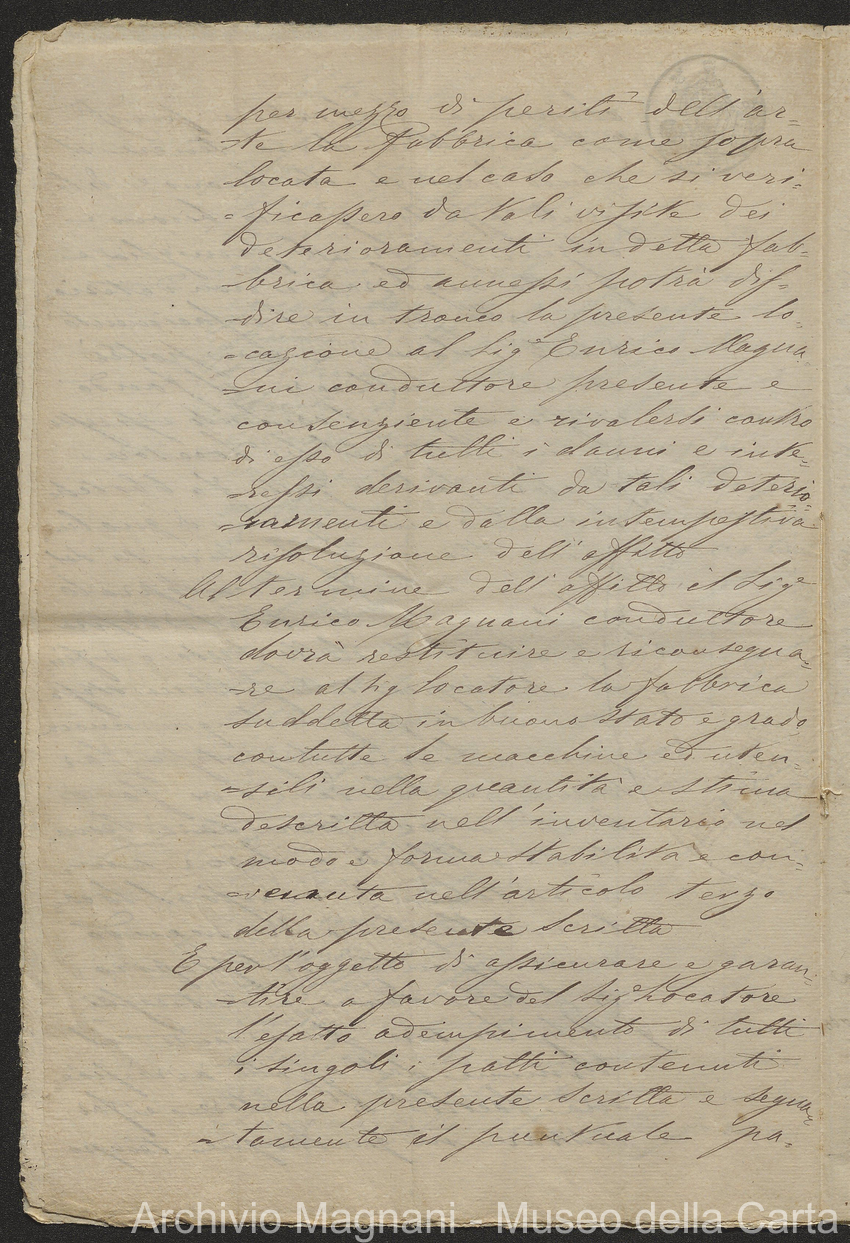 per mezzo di periti dell'ar=
=te la Fabbrica come sopra
locata e nel caso che si veri=
=ficassero da tali visite dei
deterioramenti in detta fab=
brica ed annessi potrà dis=
=dire in tronco la presente lo=
=cazione al Sigr Enrico Magna
=ni conduttore presente e
consenziente e rivalersi contro
di esso di tutti i danni e inte=
=ressi derivanti da tali deterio
=ramenti e dalla intempestiva
risoluzione dell'affitto
Al termine dell'affitto il Sigr
Enrico Magnani conduttore
dovrà restituire e riconsegna=
=re al Sig locatore la fabbrica
suddetta in buono stato e grado
con tutte le macchine ed uten=
=sili nella quantità e stima
descritta nell'inventario nel
modo e forma stabilita e con=
=venuta nell'articolo terzo
della presente scritta
E per l'oggetto di assicurare e garan=
=tire a favore del Sigr Locatore
l'esatto adempimento di tutti
i singoli i patti contenuti
nella presente scritta e segna=
=tamente il puntuale pa=
Archivio Magnani - Museo della Carta